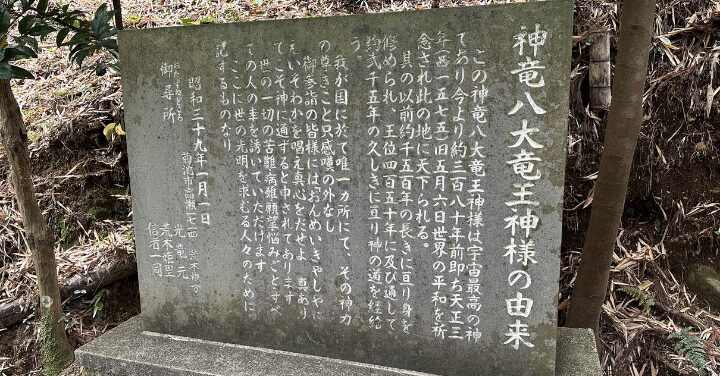 神竜八大竜王神様の由来
この神竜八大竜王神様は宇宙最高の神
であり今より約三百八十年前即ち天正三
年(西一五七五)旧五月六日世界の平和を祈
念され此の地に天下られる。
其の以前約千五百年の長きに亘り身を
修められ、王位四百五十年に及び通して
約弐千五年の久しきに亘り神の道を経給
う。
我が国に於て唯一ヵ所にて、その神力
の尊きこと只感嘆の外なし
御参詣の皆様には「おんめいきやしやに
えいそわか」を唱え真心をだせよ 真あり
てこそ神に通ずると申されてあります
世の一切の苦難病難願望悩みごとすべ
ての人の幸を誘いていただけます
ここに世の光明を求むる人々のために
記するものなり
昭和三十九年一月一日
おたずねどころ
御尋所
菊池市高瀬一七一四
光竜元
荒木姫里
信者一同